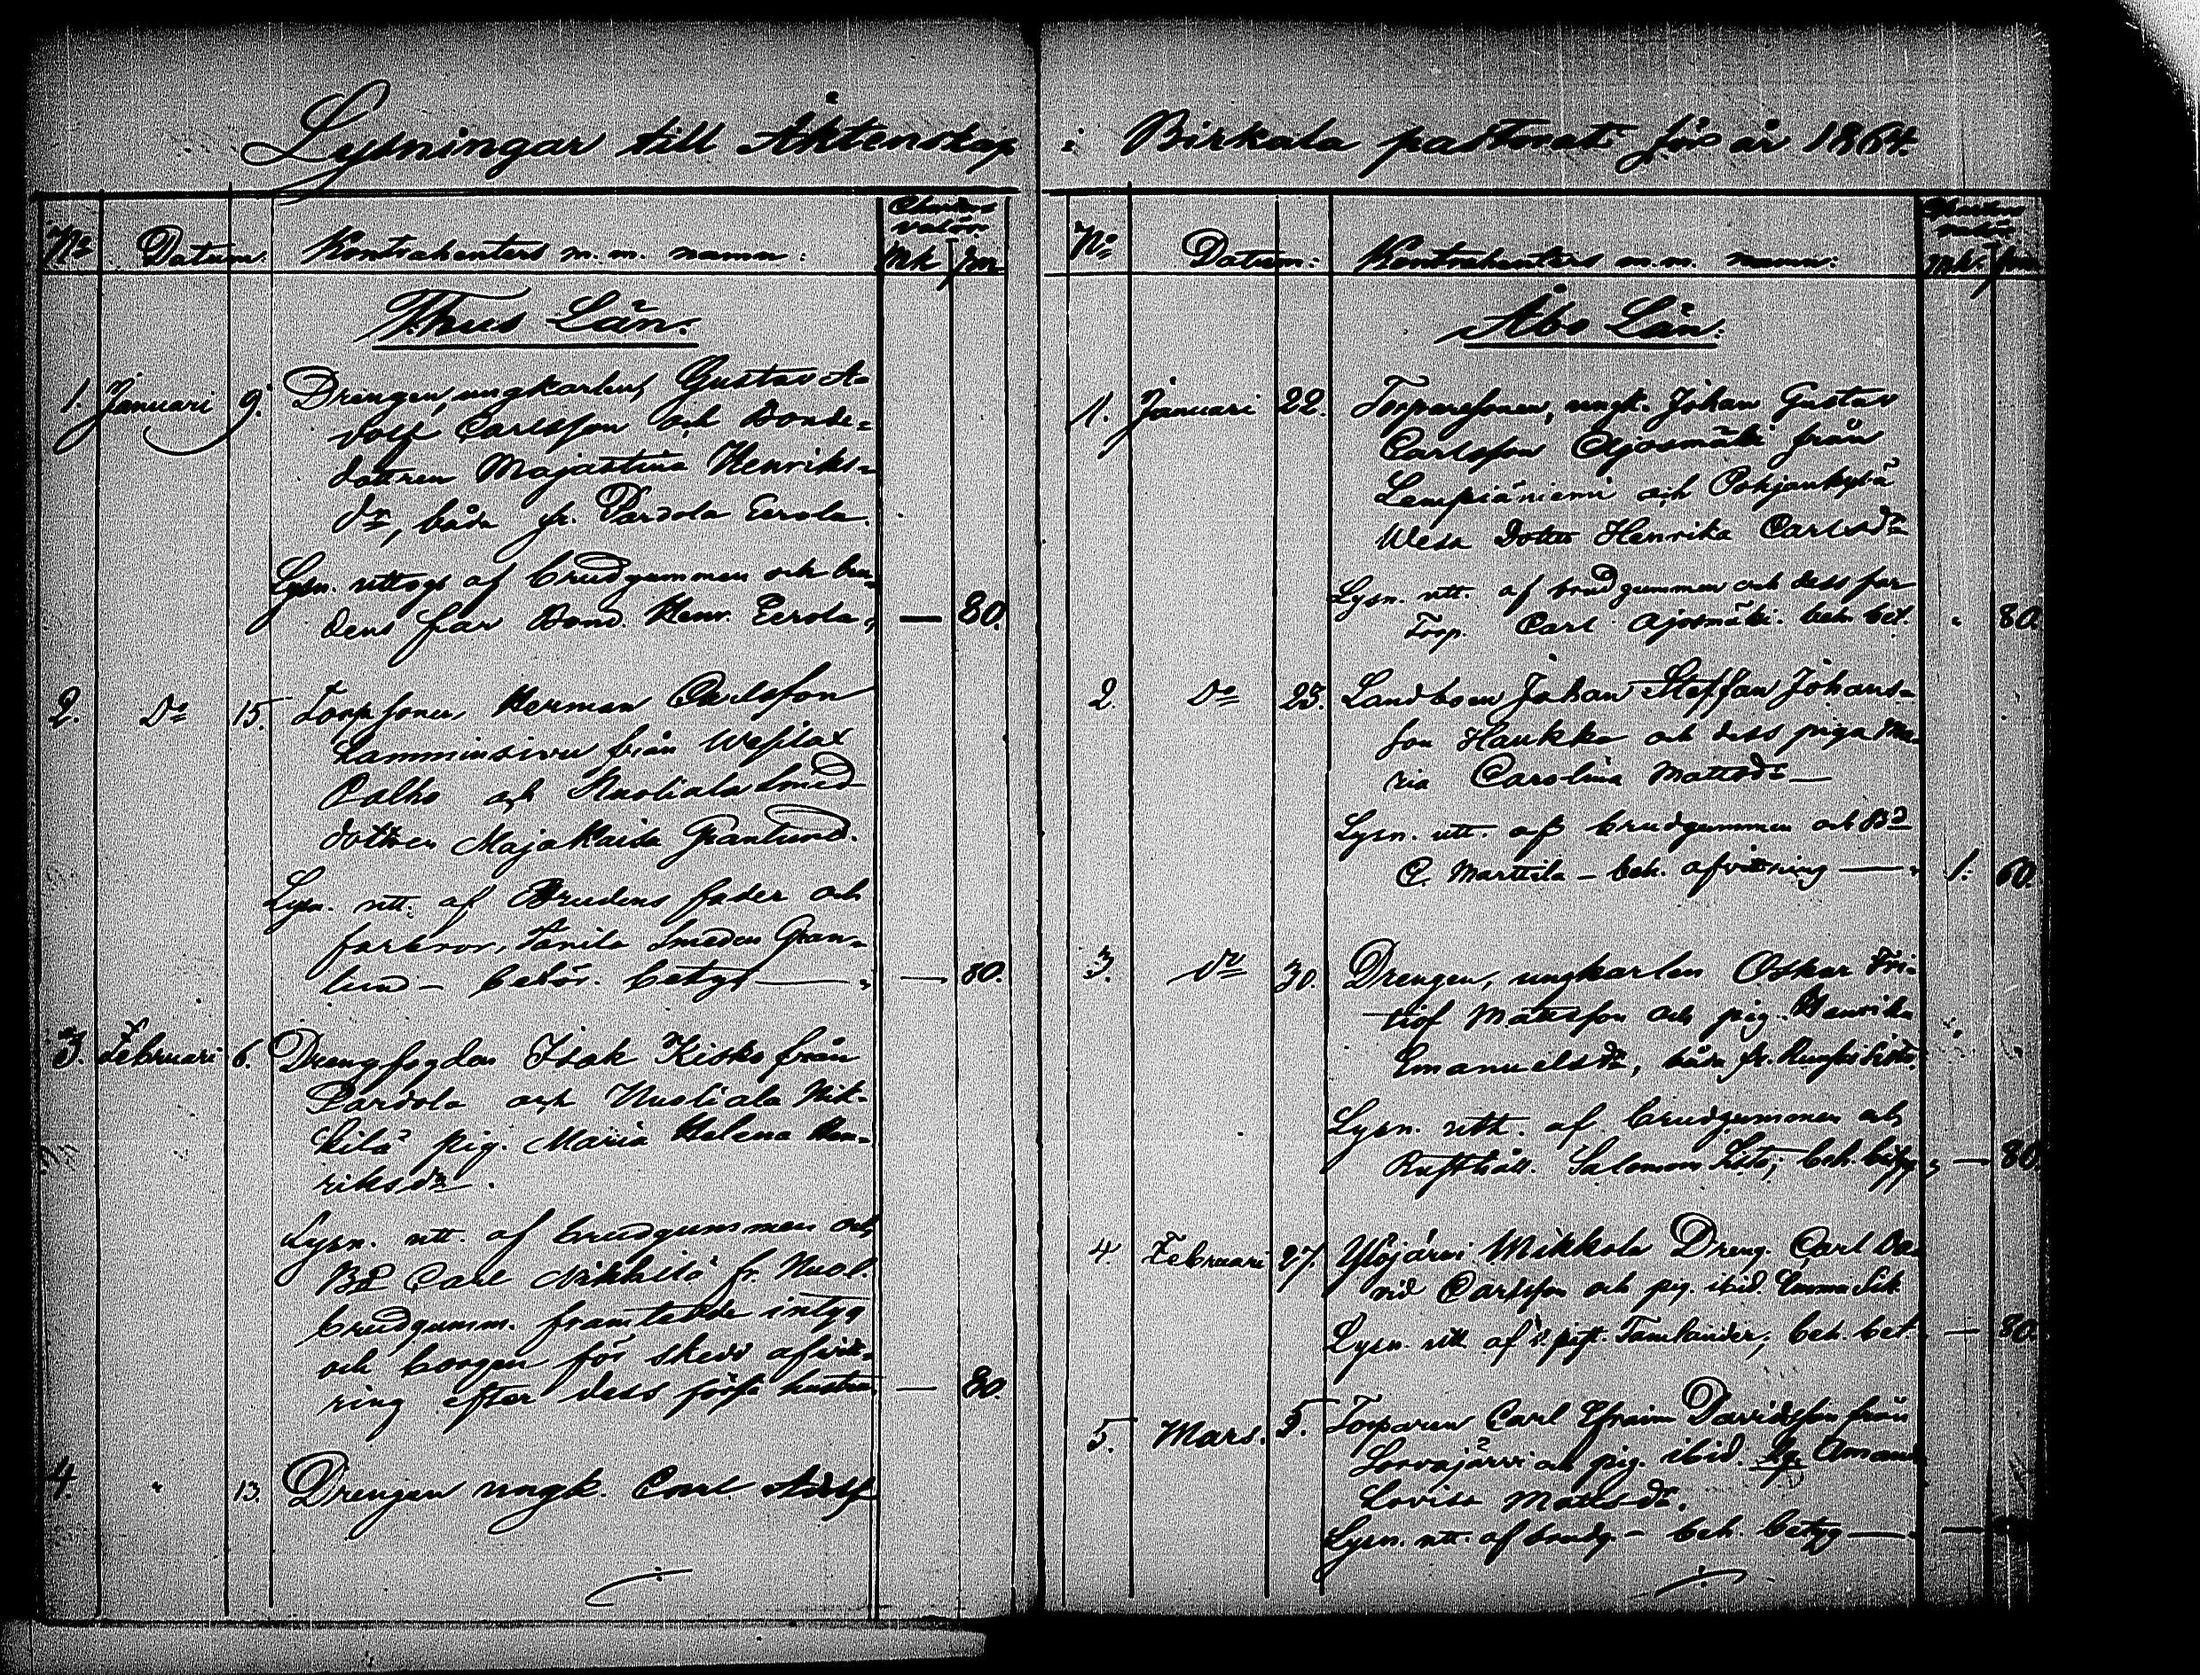 Lysningar till Äktenskap i Birkala pastorat för år 1864.
No Datum. Kontrahenters m. m. namn: Mk pn
Thus Län:
1. Januari 9. Drengen, ungkarlen Gustav A-
dolf Carlsson och Bonde-
dottren Majastina Henriks-
dr, båda fr. Pardola Eerola.
Lysn. uttogs af brudgummen och bru-
dens far Bond. Henr. Eerola, — 80.
2. Do 15. Torpsonen Herman Carlsson
Lamminsivu från Wesilax
Palho och Nuoliala Smed
dottren Maja Kaisa Granlund.
Lysn. utt. af Brudens fader och
farbror, Tanila Smeden Gran-
lund — behör. betyg — — 80.
3. Februari 6. Drengfogden Isak Kisko från
Pardola och Nuoliala Nik-
kilä pig. Maria Helena Hen-
riksdr.
Lysn. utt. af brudgummen och
Bd Carl Nikkilä fr. Nuol.
brudgumm. framtedde intyg
och borgen för skedd afvitt-
ring efter dess förra hustru. — 80.
4. " 13. Drengen ungk. Carl Adolf
No Datum: Kontrahenters m.m. namn: Mk. pn.
Åbo Län:
1. Januari 22. Torparesonen, ungk. Johan Gustav
Carlsson Ajosmäki från
Lempiäniemi och Pohjankylä
Wesa Dotter Henrika Carlsdr
Lysn. utt. af brudgummen och dess far
Torp. Carl Ajosmäki. beh. bet. " 80.
2. Do 25. Landboen Johan Steffan Johans-
son Haukka och dess piga Ma-
ria Carolina Mattsdr —
Lysn. utt. af brudgummen och Bd
C. Marttila — beh. afvittring — 1. 60.
3. Do 30. Drengen, ungkarlen Oskar Fri-
tiof Mattsson och pig. Henrika
Emanuelsdr, båda fr.
Lysn. utt. af brudgummen och
Rusthåll. Salomon beh. betyg, — 80.
4. Februari 27. Ylöjärvi Mikkola Dreng. Carl Da-
vid Carlsson och pig. ibid. Emma
Lysn. utt. af Tamlander, beh. bet. — 80.
5. Mars. 5. Torparen Carl Efraim Davidsson från
Sorvajärvi och pig. ibid. Amanda
Lovisa Mattsdr.
Lysn. utt. af brudg. — beh. betyg — —